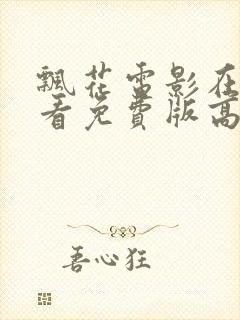 飘花雷影在
看免费版高
吾心狂